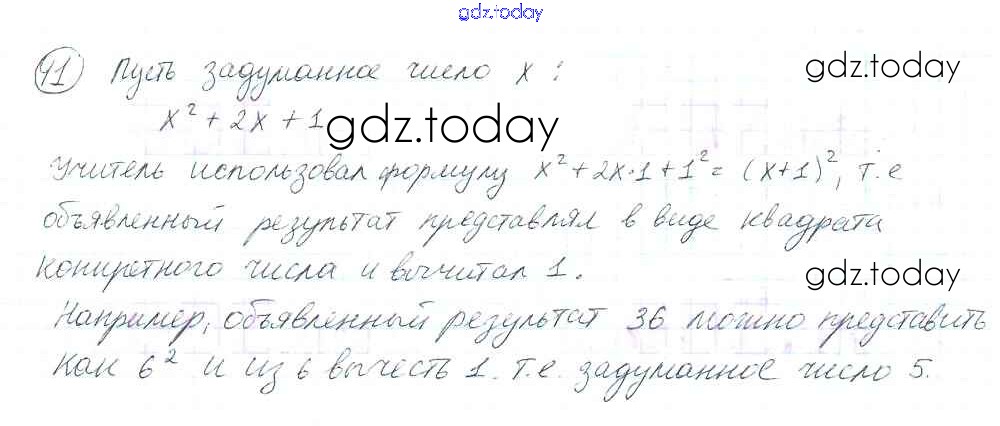 gdz.today
41) Пусть задуманное число x : gdz.today
x² + 2x + 1 gdz.today
Учитель использовал формулу x² + 2x·1 + 1² = (x+1)², т.е
объявленный результат представлял в виде квадрата
конкретного числа и вычитал 1. gdz.today
Например, объявленный результат 36 можно представить
как 6² и из 6 вычесть 1. т.е. задуманное число 5.